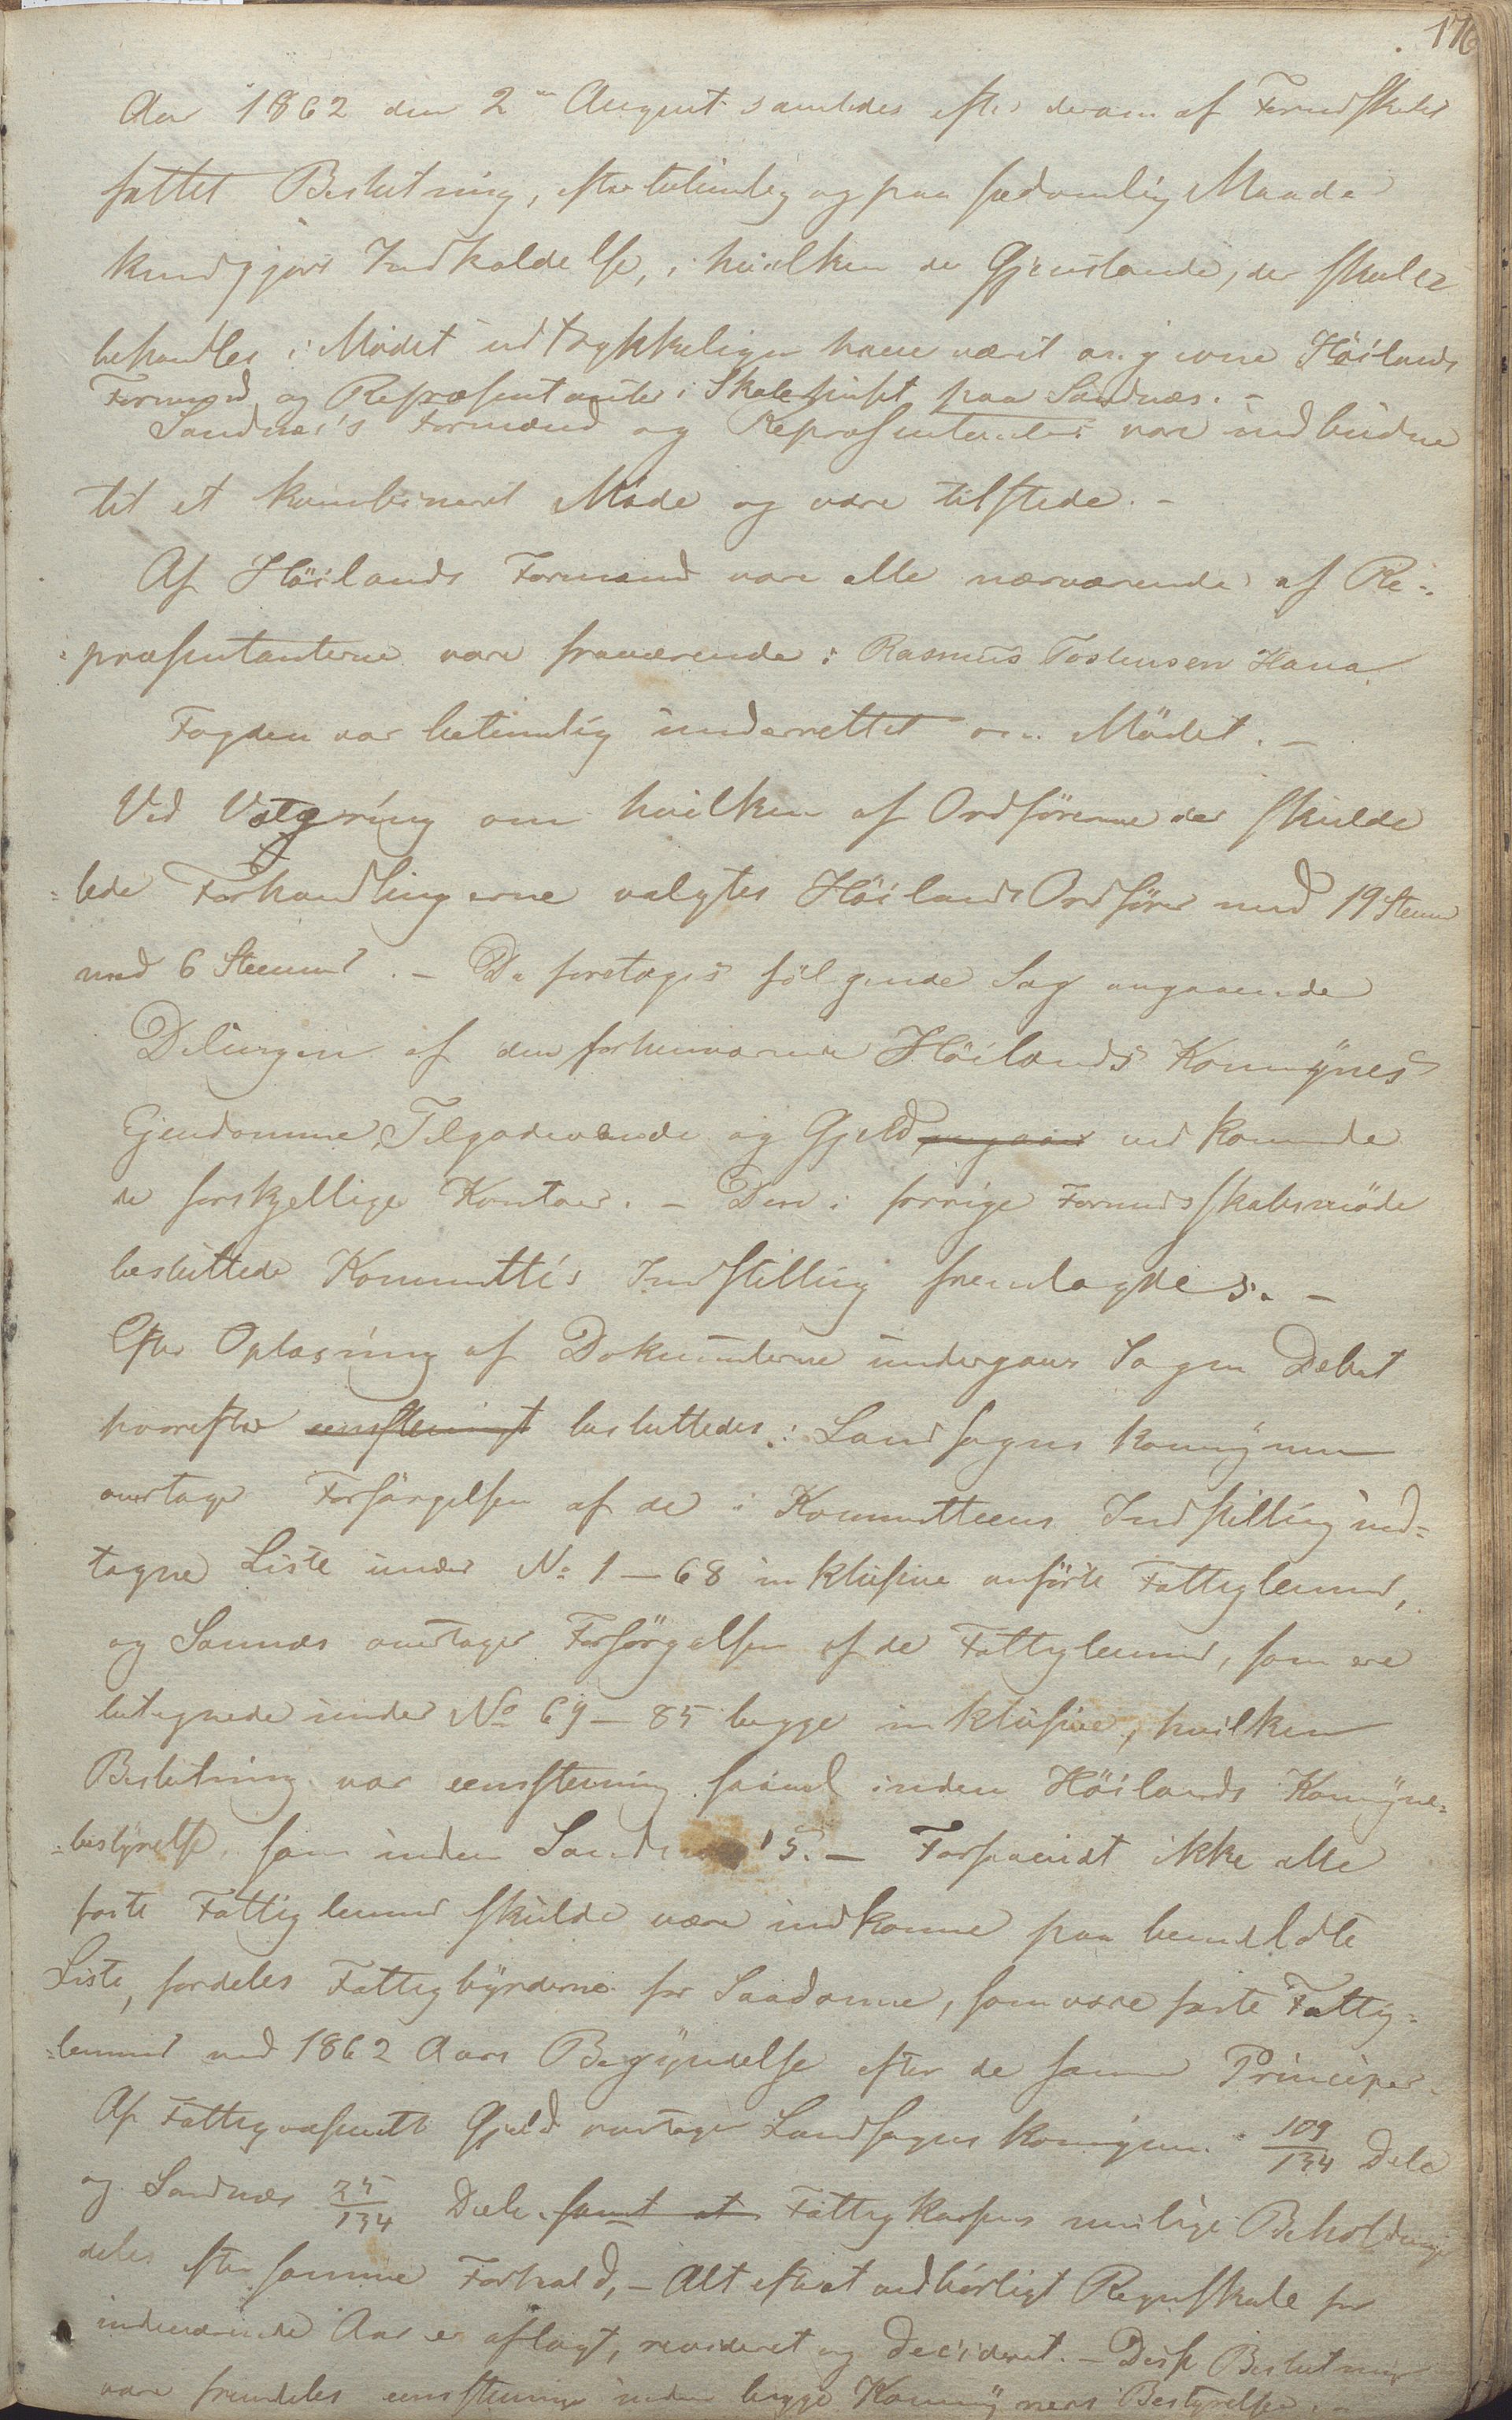 176
Aar 1862 den 2den August samledes efter derom af Formdskabet
fattet Beslutning, efter betimelig og paa sædvanlig Maade
kundgjort Indkaldelse, i hvilken de Gjenstande, der skulle
behandles i Mødet udtrykkeligen have været angivne Höilands
Formænd og Repræsentanter i Skolehuset paa Sandnæs. -
Sandnæs's Formænd og Repræsentanter vare indbudne
til et kombineret Møde og vare tilstede. -
Af Höilands Formænd vare alle nærværende af Re-
præsentanterne vare fraværende: Rasmus Tostensen Hana
Fogden var betimelig underrettet om Mödet. -
Ved Vælgring om hvilken af Ordförerne der skulde
lede Forhandlingerne valgtes Höilands Ordfører med 19 Stemmer
mod 6 Stemmer. - Da foretoges fölgende Sag angaaende
Delingen af den forhenværende Höilands Kommünes
Ejendomme, Tilgodehavende og Gjeld angaar vedkommende
de forskjellige Kontoer. - Den i forrige Formdskabsmöde
besluttede Kommittes Indstilling fremlagdes. -
Efter Oplæsning af Dokumenterne undergaar Sagen Debat
hvorefter eenstemmigt besluttedes: Landsognets Kommünen
overtager Forsörgelsen af de i Kommitteens Indstilling ind-
tagne Liste under No 1 - 68 inklusive anförte Fattiglemmer,
og Sannæs overtager Forsörgelsen af de Fattiglemmer, som ere
betegnede under No 69 - 85 begge inklusive, hvilken
Beslutning var eenstemmig saavel inden Höilands Kommüne-
bestyrelse som inden Sandnæs's. - Forsaavidt ikke alle
faste Fattiglemmer skulde være indkomne paa bemeldte
Liste, fordeles Fattigbyrderne for Saadanne, som vare faste Fattig-
lemmer ved 1862 Aars Begyndelse efter de samme Principer.
Af Fattigvæsenets Gjeld overtager Landsognets Kommünen 109/134 Dele
og Sandnæs 25/134 Dele samt at Fattigkassens mulige Beholdninger
deles efter samme Forhold, - Alt efterat vedbörligt Regnskab for
indeværende Aar er aflagt, revideret og decideret. - Disse Beslutninger
vare fremdeles eenstemmige inden begge Kommüners Bestyrelser. -